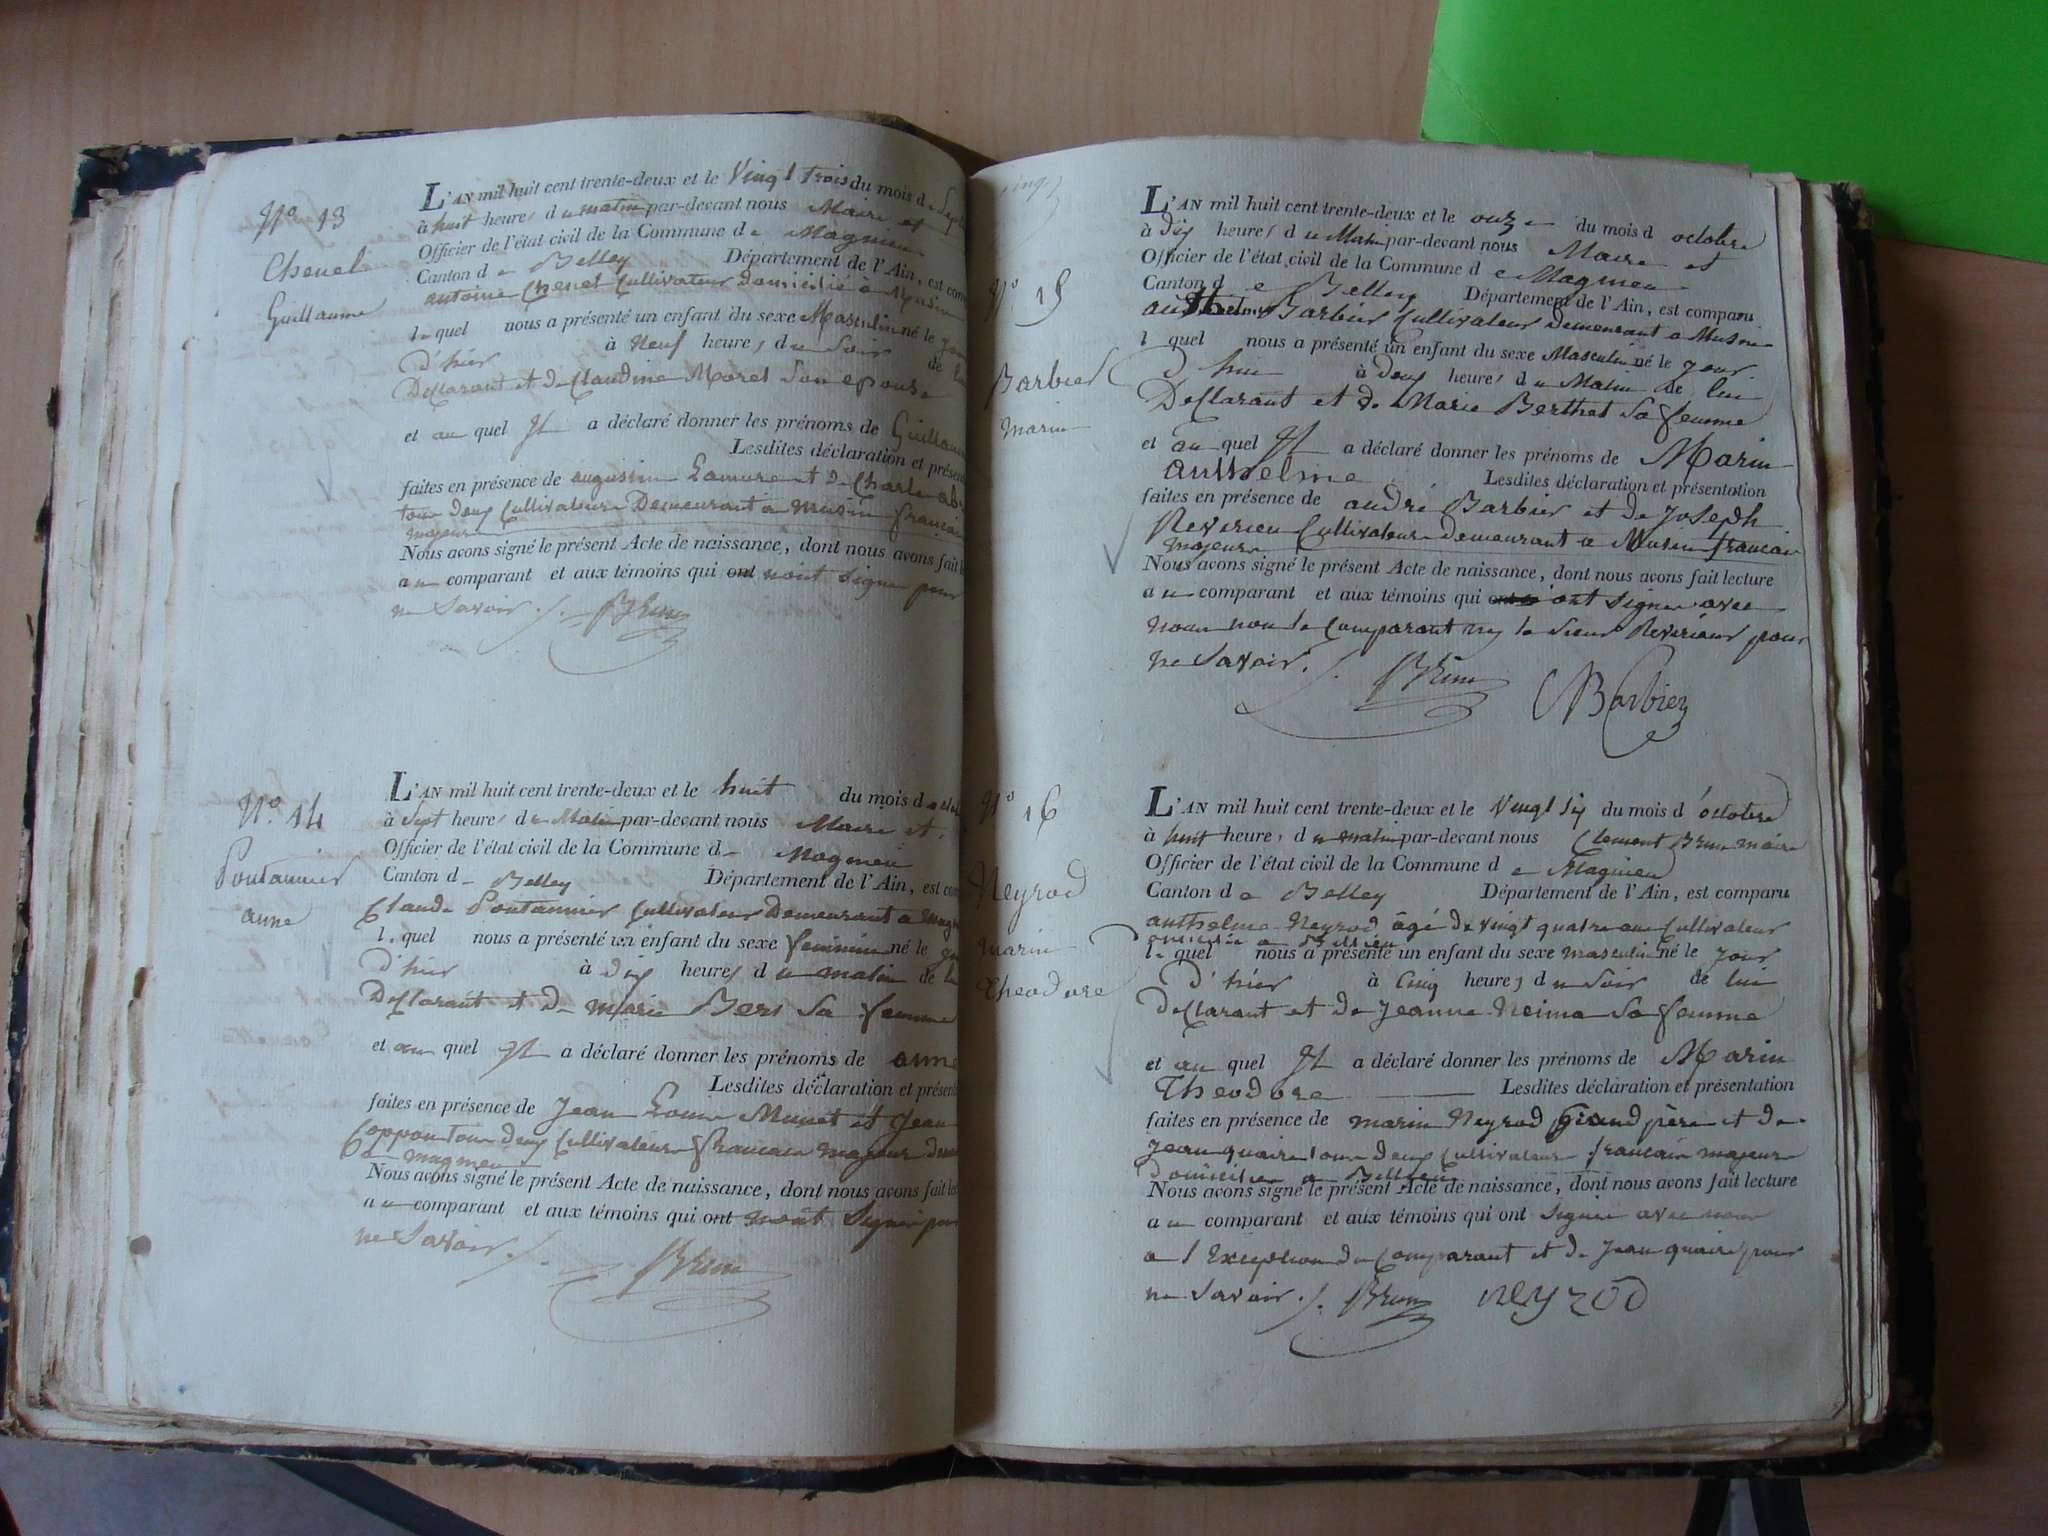 N.º 13
Chenel
Guillaume
L'AN mil huit cent trente-deux et le Vingt trois du mois de Sept
à huit heures du matin par-devant nous Maire et
Officier de l'état civil de la Commune de Magnieu
Canton de Belley Département de l'Ain, est com
antoine Chenel Cultivateur Domicilié a Musin
lequel nous a présenté un enfant du sexe Masculin né le jour
d'hier à Neuf heures du Soir de lui
Declarant et de Claudine Morel Son epouse
et au quel Il a déclaré donner les prénoms de Guillaume
Lesdites déclaration et présent
faites en présence de augustin Lamure et de Charle
tous deux Cultivateurs Demeurant a Musin francais
majeurs
Nous avons signé le présent Acte de naissance, dont nous avons fait le
au comparant et aux témoins qui ont n'ont signer pour
ne Savoir ./. Brun
N.º 14
Pontannier
anne
L'AN mil huit cent trente-deux et le huit du mois d
à Sept heures du Matin par-devant nous Maire et
Officier de l'état civil de la Commune de Magnieu
Canton de Belley Département de l'Ain, est com
Claude Pontannier Cultivateur Demeurant a Mag
lequel nous a présenté un enfant du sexe feminin né le
d'hier à dix heures du matin de lui
Declarant et de marie Bers Sa femme
et au quel Il a déclaré donner les prénoms de anne
Lesdites déclaration et présent
faites en présence de Jean Louis Munet et Jean
tous deux Cultivateurs francais majeurs
a magnieu
Nous avons signé le présent Acte de naissance, dont nous avons fait lec
au comparant et aux témoins qui ont n'ont Signer pour
ne Savoir ./. Brun
N.º 15
Barbier
Marin
L'AN mil huit cent trente-deux et le onze du mois d octobre
à dix heures du Matin par-devant nous Maire et
Officier de l'état civil de la Commune de Magnieu
Canton de Belley Département de l'Ain, est comparu
authelme Barbier Cultivateur Demeurant a Musin
lequel nous a présenté un enfant du sexe Masculin né le Jour
d'hier à deux heures du Matin de lui
Declarant et de Marie Berthet Sa femme
et au quel Il a déclaré donner les prénoms de Marin
authelme Lesdites déclaration et présentation
faites en présence de andré Barbier et de Joseph
Reverieu Cultivateurs demeurant a Musin francais
majeurs
Nous avons signé le présent Acte de naissance, dont nous avons fait lecture
au comparant et aux témoins qui ont signer avec
nous non le Comparant ny le Sieur pour
ne Savoir ./. Brun Barbier
N.º 16
Neyrod
marin
Theodore
L'AN mil huit cent trente-deux et le Vingt six du mois d'octobre
à huit heures du matin par-devant nous Clement Brun maire
Officier de l'état civil de la Commune de Magnieu
Canton de Belley Département de l'Ain, est comparu
authelme Neyrod âgé de vingt quatre ans Cultivateur
domicilié a Billieu
lequel nous a présenté un enfant du sexe masculin né le Jour
d'hier à Cinq heures du Soir de lui
declarant et de Jeanne Neima Sa femme
et au quel Il a déclaré donner les prénoms de Marin
Theodore Lesdites déclaration et présentation
faites en présence de marin Neyrod Grand père et de
Jean quaire tous deux Cultivateurs francais majeurs
Domiciliés a Billieu
Nous avons signé le présent Acte de naissance, dont nous avons fait lecture
au comparant et aux témoins qui ont Signer avec nous
a l'Exeption du Comparant et de Jean quaire pour
ne Savoir ./. Brun neyrod